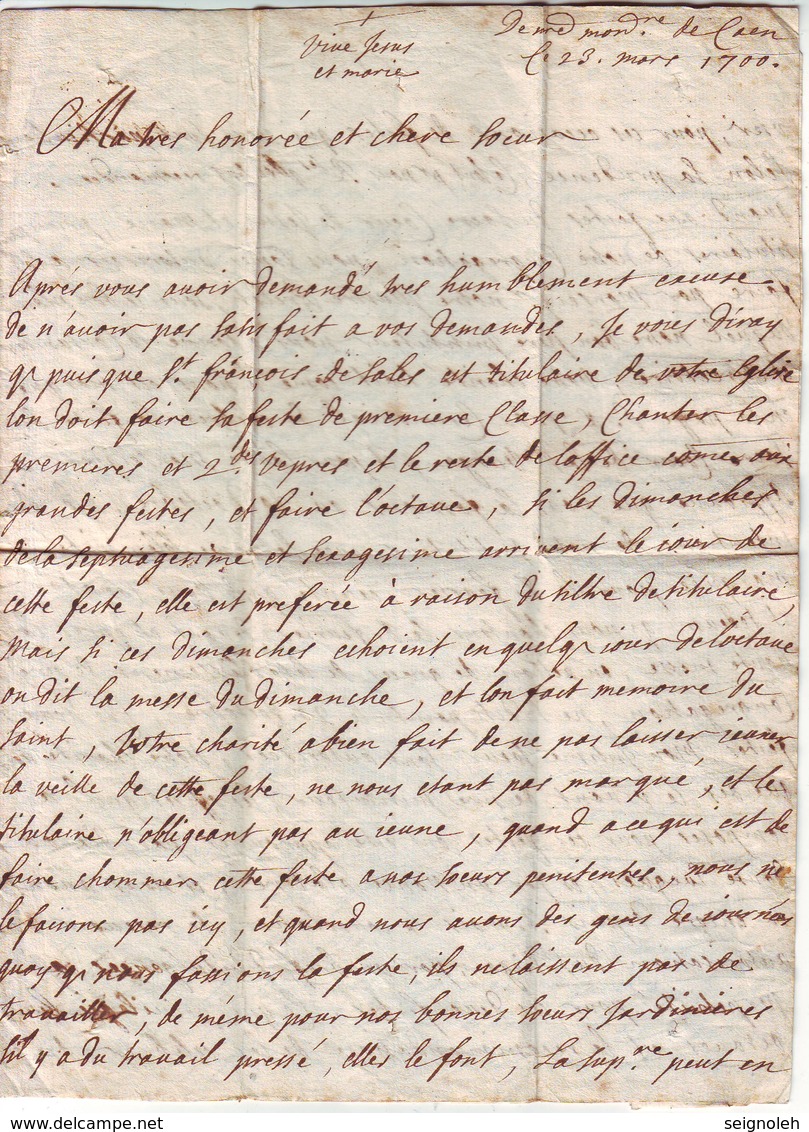 Vive Jesus
et marie
De nre monre. de Caen
Ce 23. mars 1700.
Ma tres honorée et chere soeur
Aprés vous avoir demandé tres humblement excuse
de n'avoir pas satisfait a vos demandes, Je vous diray
q puis que st. françois de sales est titulaire de votre Eglise
lon doit faire sa feste de premiere Classe, Chanter les
premieres et 2.des vepres et le reste de loffice come aux
grandes festes, et faire l'octave, si les dimanches
de la septuagesime et sexagesime arrivent le iour de
cette feste, elle est preferée à raison du tiltre de titulaire,
Mais si ces dimanches echoient en quelq iour de loctave
on dit la messe du dimanche, et lon fait memoire du
saint, Votre charité a bien fait de ne pas laisser ieuner
la veille de cette feste, ne nous etant pas marqué, et le
titulaire n'obligeant pas au ieune, quand a ce qui est de
faire chommer cette feste a vos soeurs penitentes, nous ne
le faisons pas icy, et quand nous avons des gens de iournées
quoy q nous fassions la feste, ils ne laissent pas de
travailler, de méme pour nos bonnes soeurs Jardinieres
sil y a du travail pressé, elles le font, La sup.re peut en
seignoleh